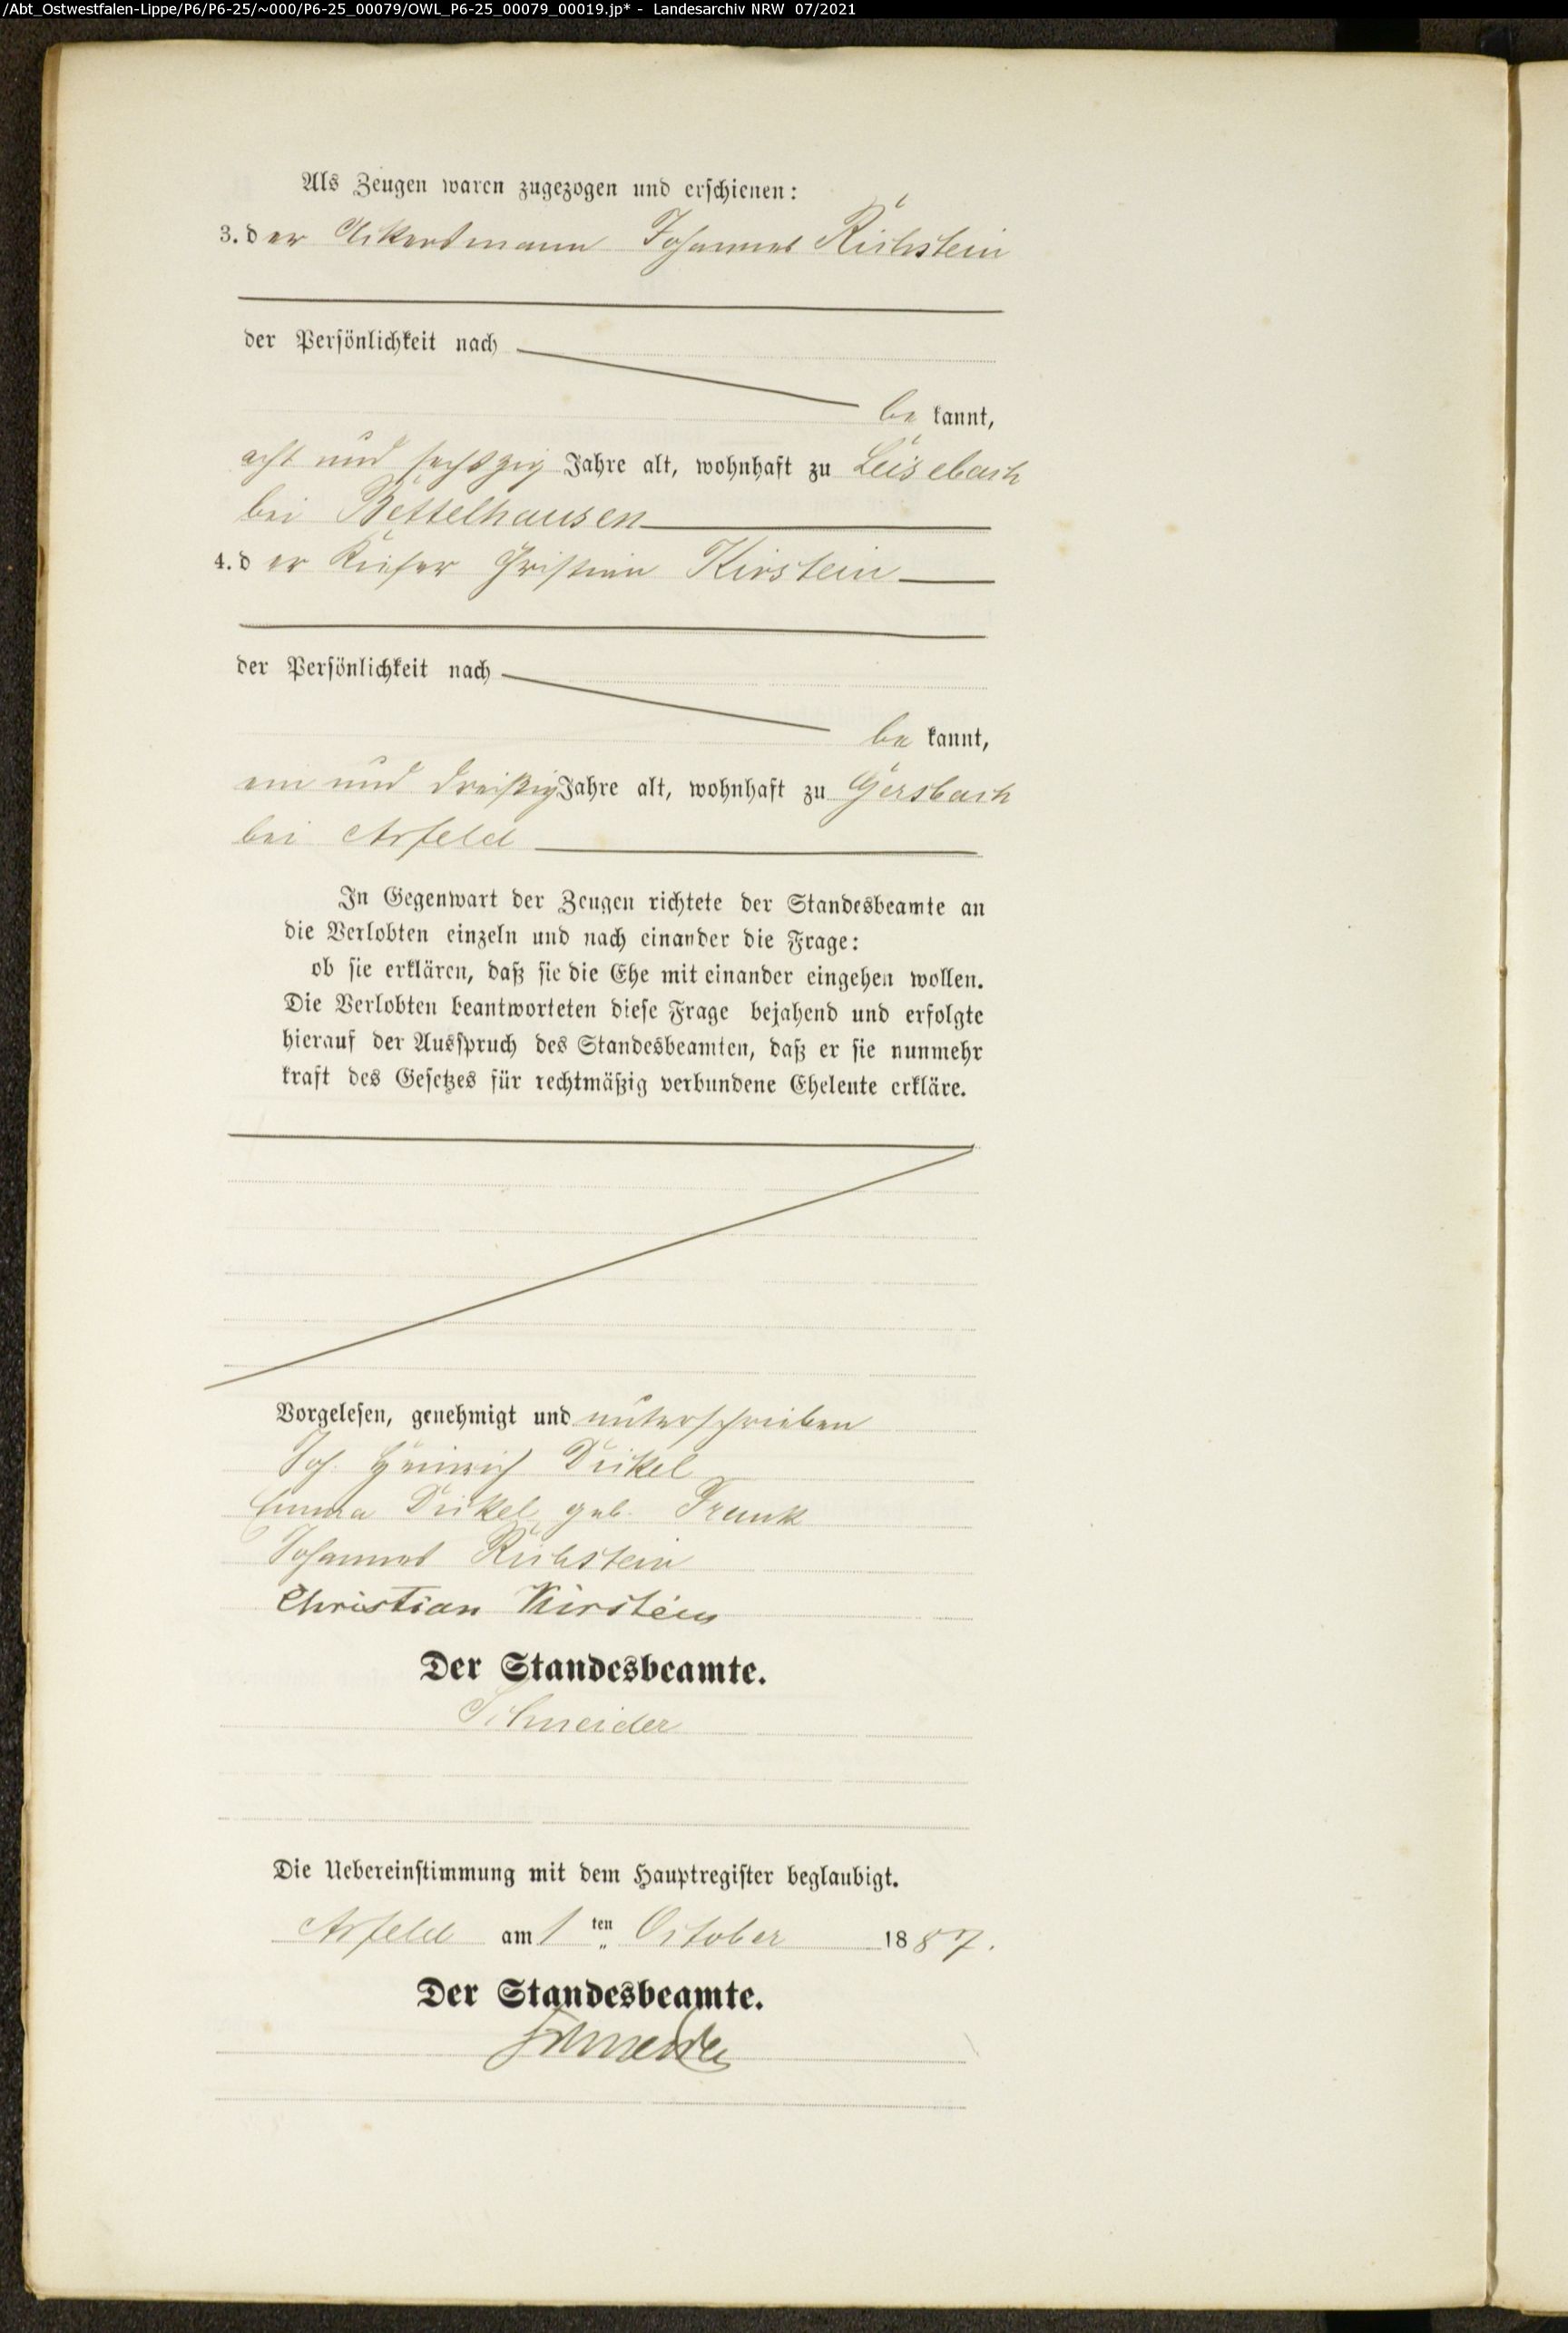 /Abt_Ostwestfalen-Lippe/P6/P6-25/~000/P6-25_00079/OWL_P6-25_00079_00019.jp* - Landesarchiv NRW 07/2021
Als Zeugen waren zugezogen und erschienen:
3. der Ackersmann Johannes
der Persönlichkeit nach
be kannt,
acht und sechszig Jahre alt, wohnhaft zu Leisebach
bei Bettelhausen
4. der Küfer Christian Kirstein
der Persönlichkeit nach
be kannt,
ein und dreißig Jahre alt, wohnhaft zu Gersbach
bei Arfeld
In Gegenwart der Zeugen richtete der Standesbeamte an
die Verlobten einzeln und nach einander die Frage:
ob sie erklären, daß sie die Ehe mit einander eingehen wollen.
Die Verlobten beantworteten diese Frage bejahend und erfolgte
hierauf der Ausspruch des Standesbeamten, daß er sie nunmehr
kraft des Gesetzes für rechtmäßig verbundene Eheleute erkläre.
Vorgelesen, genehmigt und unterschrieben
Joh. Heinrich Dickel
Emma Dickel geb. Frank
Johannes
Christian Kirstein
Der Standesbeamte.
Schneider
Die Uebereinstimmung mit dem Hauptregister beglaubigt.
Arfeld am 1 ten October 1887.
Der Standesbeamte.
Schneider